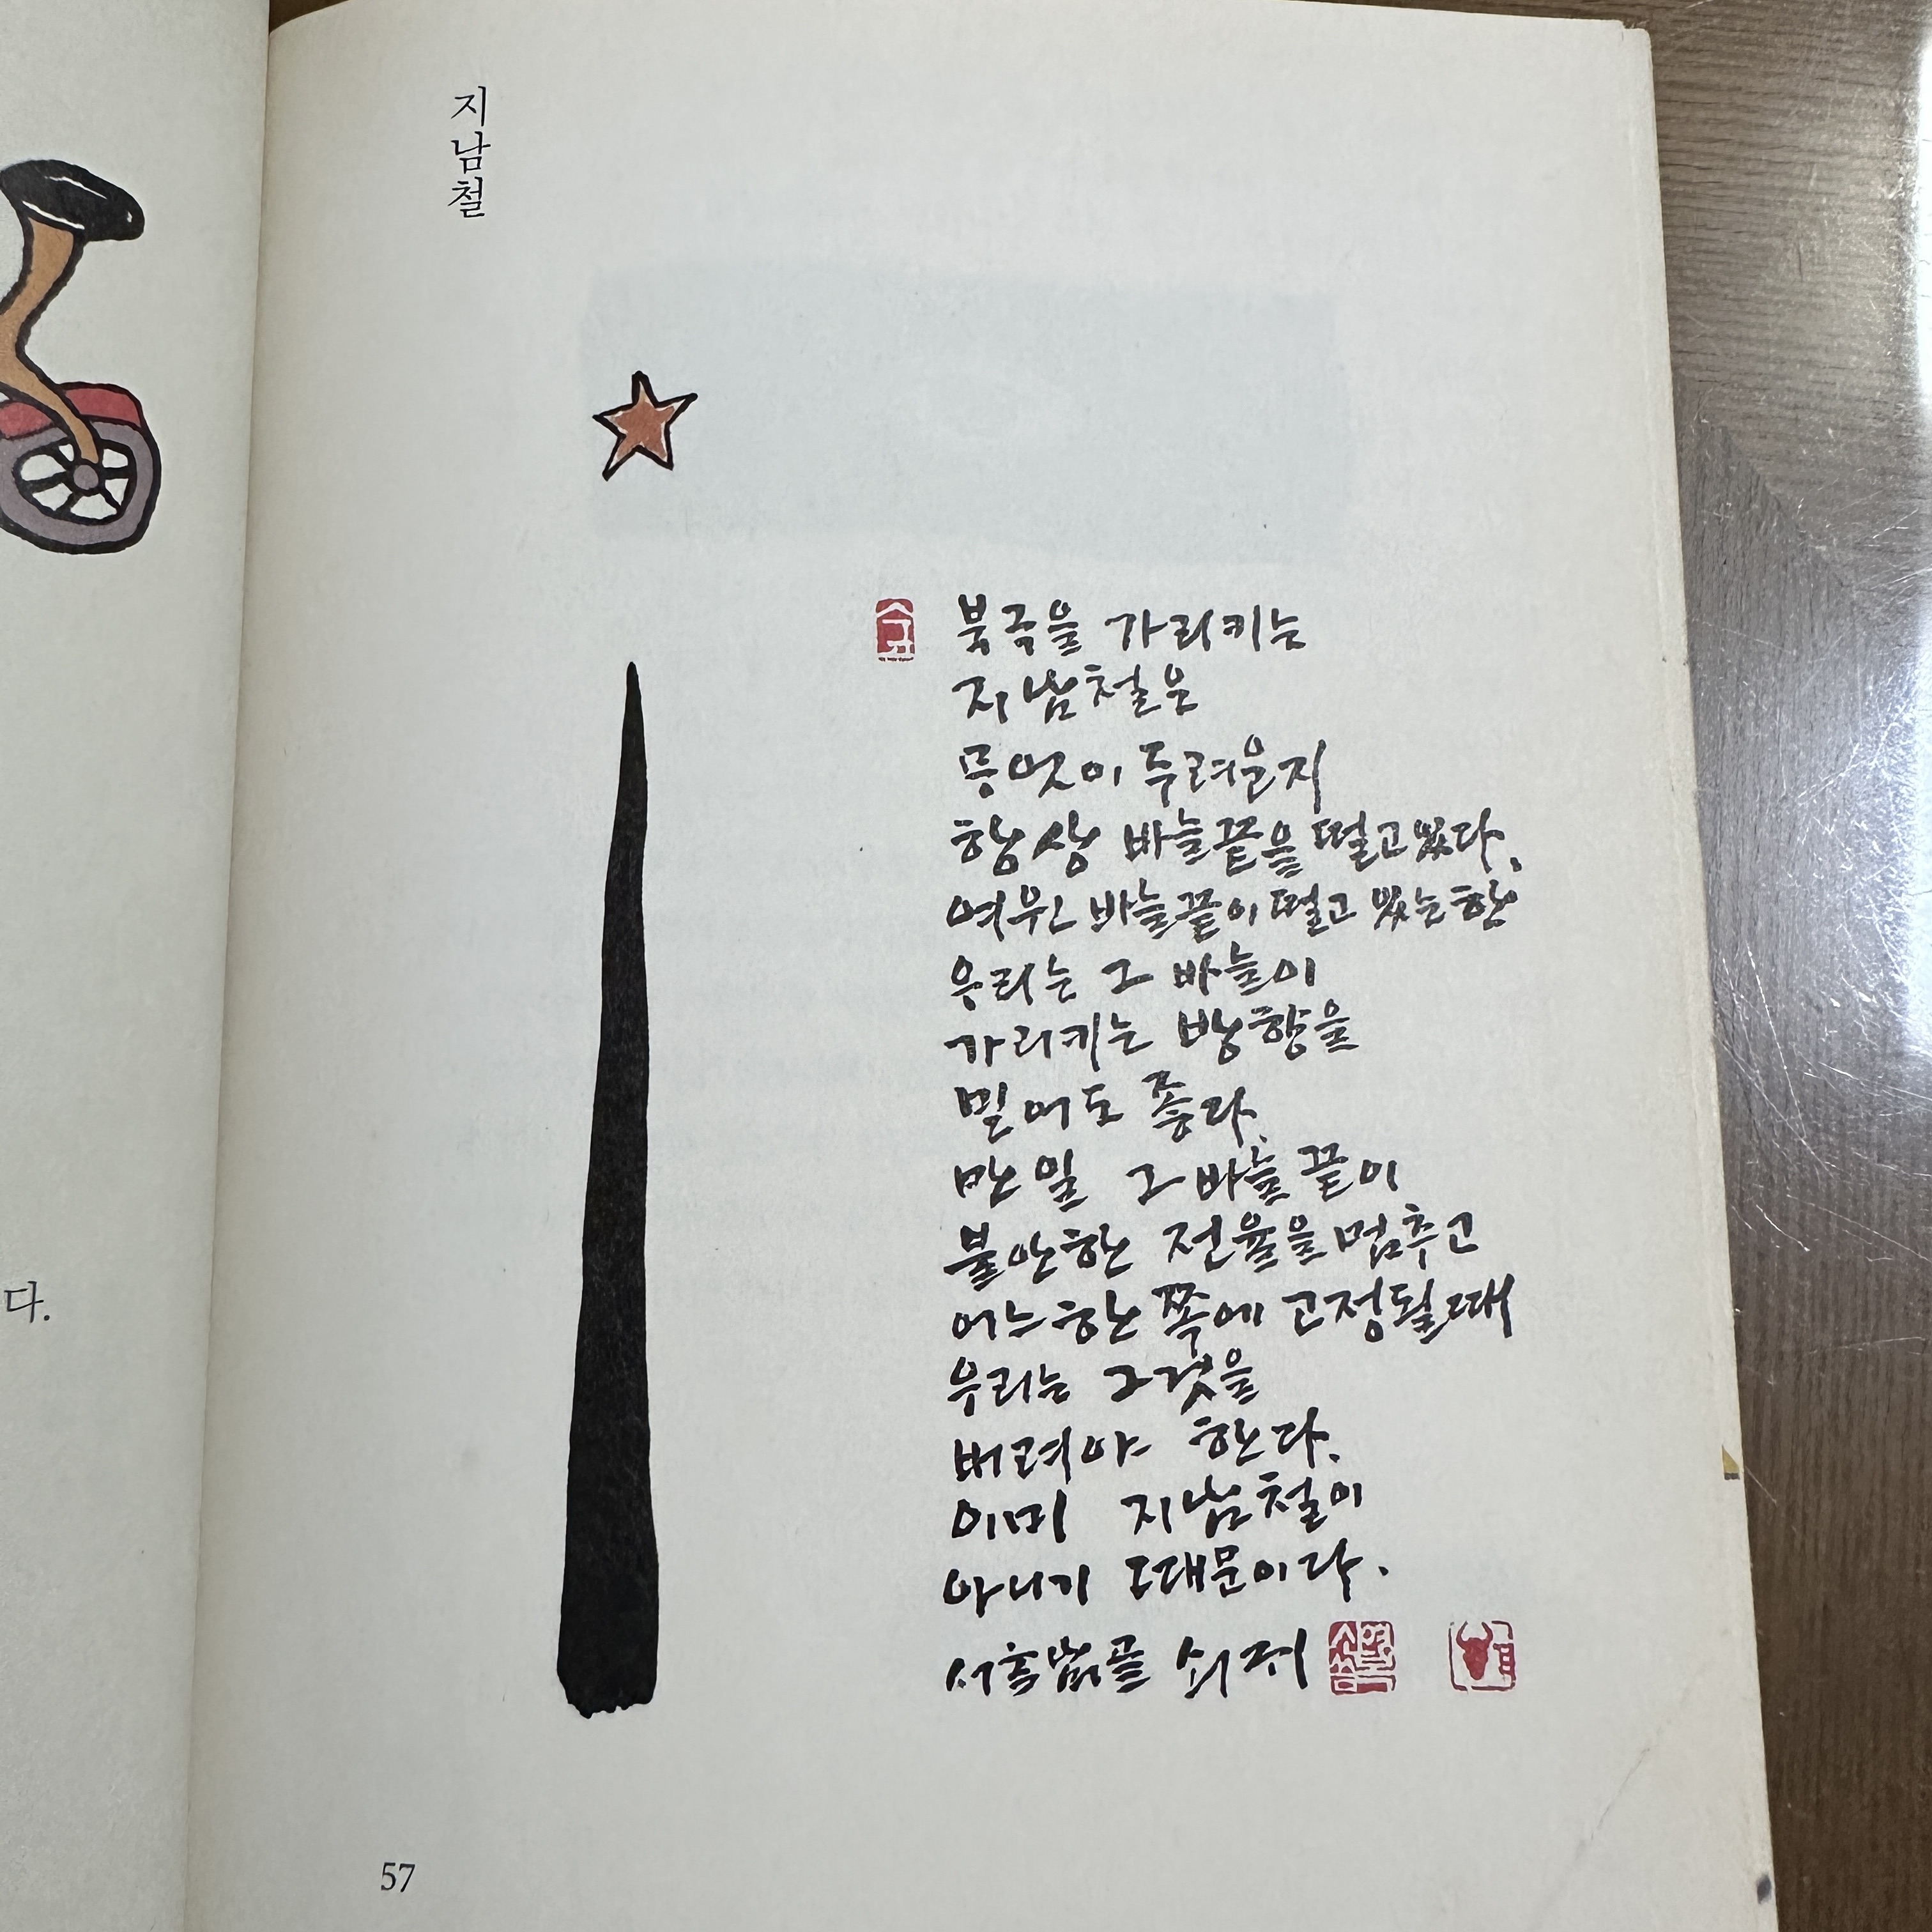 지남철
북극을 가리키는
지남철은
무엇이 두려운지
항상 바늘끝을 떨고있다.
여윈 바늘끝이 떨고 있는한
우리는 그 바늘이
가리키는 방향을
믿어도 좋다.
만일 그 바늘 끝이
불안한 전율을 멈추고
어느 한 쪽에 고정될때
우리는 그것을
버려야 한다.
이미 지남철이
아니기 때문이다.
다.
57